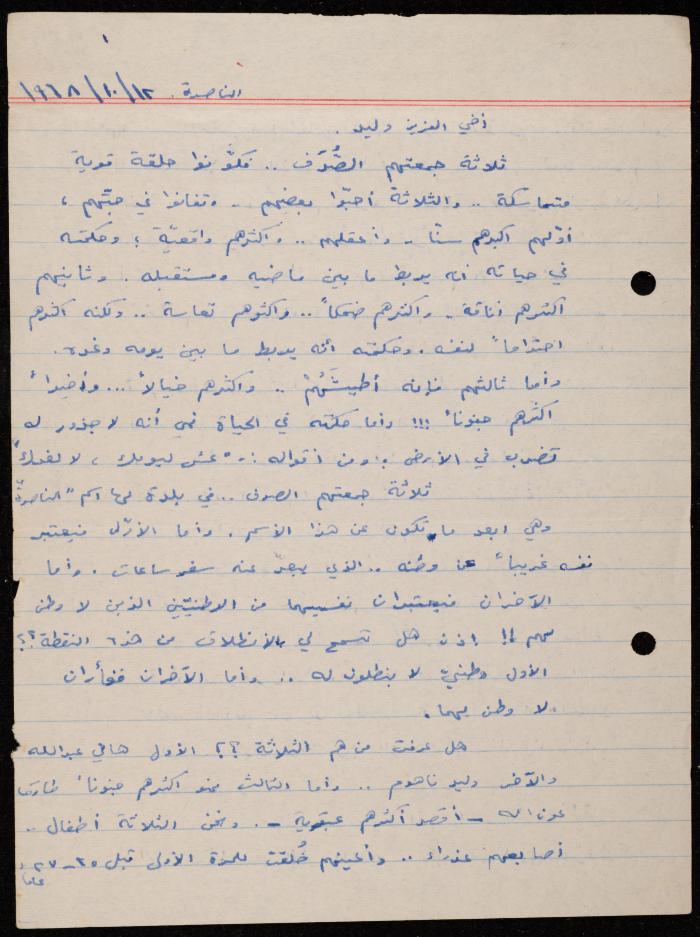 الناصرة. ١٩٦٨/١٠/١٢
أخي العزيز وليد.
ثلاثة جمعتهم الصُّدَف .. فكوَّنوا حلقة قوية
متماسكة .. والثلاثة أحبّوا بعضهم .. وتفانوا في حبّهم ؛
أوّلهم اكبرهم سنّاً .. وأعقلهم .. واكثرهم واقعيّة ؛ وحكمته
في حياته انه يربط ما بين ماضيه ومستقبله. وثانيهم
اكثرهم اناقة .. واكثرهم ضحكاً .. واكثرهم تعاسة .. ولكنه اكثرهم
احتراماً لنفسه. وحكمته انّه يربط ما بين يومه وغده.
وأما ثالثهم فإنه أطيشَهُمْ .. واكثرهم خيالاً ... وأخيراً
اكثرهم جنوناً !!! وأما حكمته في الحياة فهي أنه لا جذور له
تضرب في الأرض ؛ ومن اقواله :- "عش ليومك ، لا لغدك"
ثلاثة جمعتهم الصدف .. في بلدة لها اسم "الناصرة"
وهي ابعد ما تكون عن هذا الاسم. وأما الأوّل فيعتبر
نفسه غريباً عن وطنه .. الذي يبعد عنه سفر ساعات. وأما
الآخران فيعتبران نفسيهما من الوطنيّين الذين لا وطن
لهم !! إذن هل تسمح لي بالانطلاق من هذه النقطة ؟؟
الأول وطنيّ لا بنطلون له .. وأما الآخران فثائران
لا وطن لهما.
هل عرفت من هم الثلاثة ؟؟ الأول هاني عبدالله
والآخر وليد ناهوم .. وأما الثالث فهو اكثرهم جنوناً
عون الله - أقصد أكثرهم عبقرية -. ونحن الثلاثة أطفال ..
أصابعهم عذراء .. وأعينهم خُلقت للمرة الأولى قبل ٢٥-٢٧ عاماً